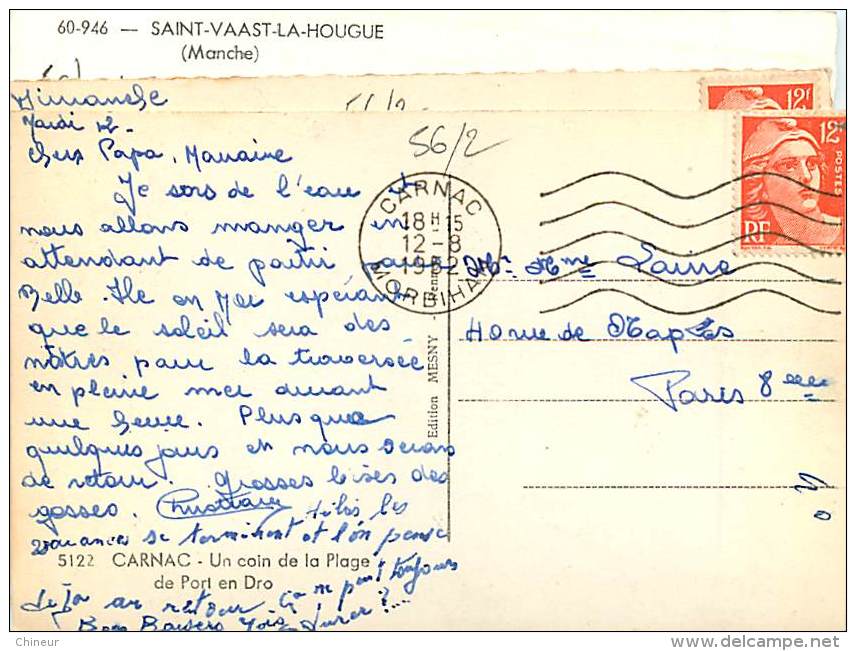 60-946 — SAINT-VAAST-LA-HOUGUE
(Manche)
Dimanche
Mardi 12 -
Chers Papa, Mamaine
56/2
Je sors de l'eau et
nous allons manger en
attendant de partir pour
Belle. Ile en Mer espérant
que le soleil sera des
nôtres pour la traversée
en pleine mer durant
une heure. Plus que
quelques jours et nous serons
de retour. Grosses bises des
gosses. Christiane Hélas les
vacances se terminent et l'on pense
5122 CARNAC - Un coin de la Plage
de Port en Dro
déjà au retour. Ça n peut toujours
Bons Baisers durer ?...
CARNAC
18H15
12-8
1952
MORBIHAN
Edition MESNY -
12F
12F
POSTES
RF
Mr Mme Laine
40 rue de Naples
Paris 8eme
Chineur
www.delcampe.net